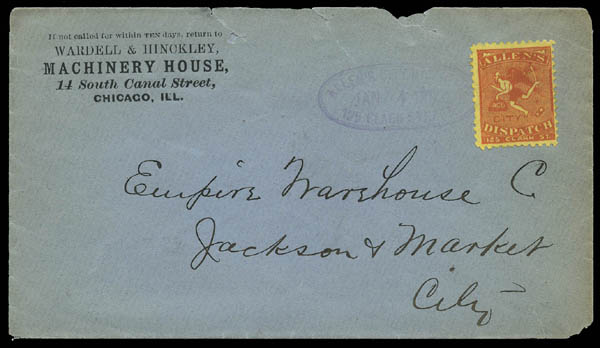 If not called for within TEN days, return to
WARDELL & HINCKLEY,
MACHINERY HOUSE,
14 South Canal Street,
CHICAGO, ILL.
ALLEN'S
JAN
125 CLARK ST.
ALLEN'S
CITY
DISPATCH
125 CLARK ST.
Empire Warehouse C
Jackson & Market
City